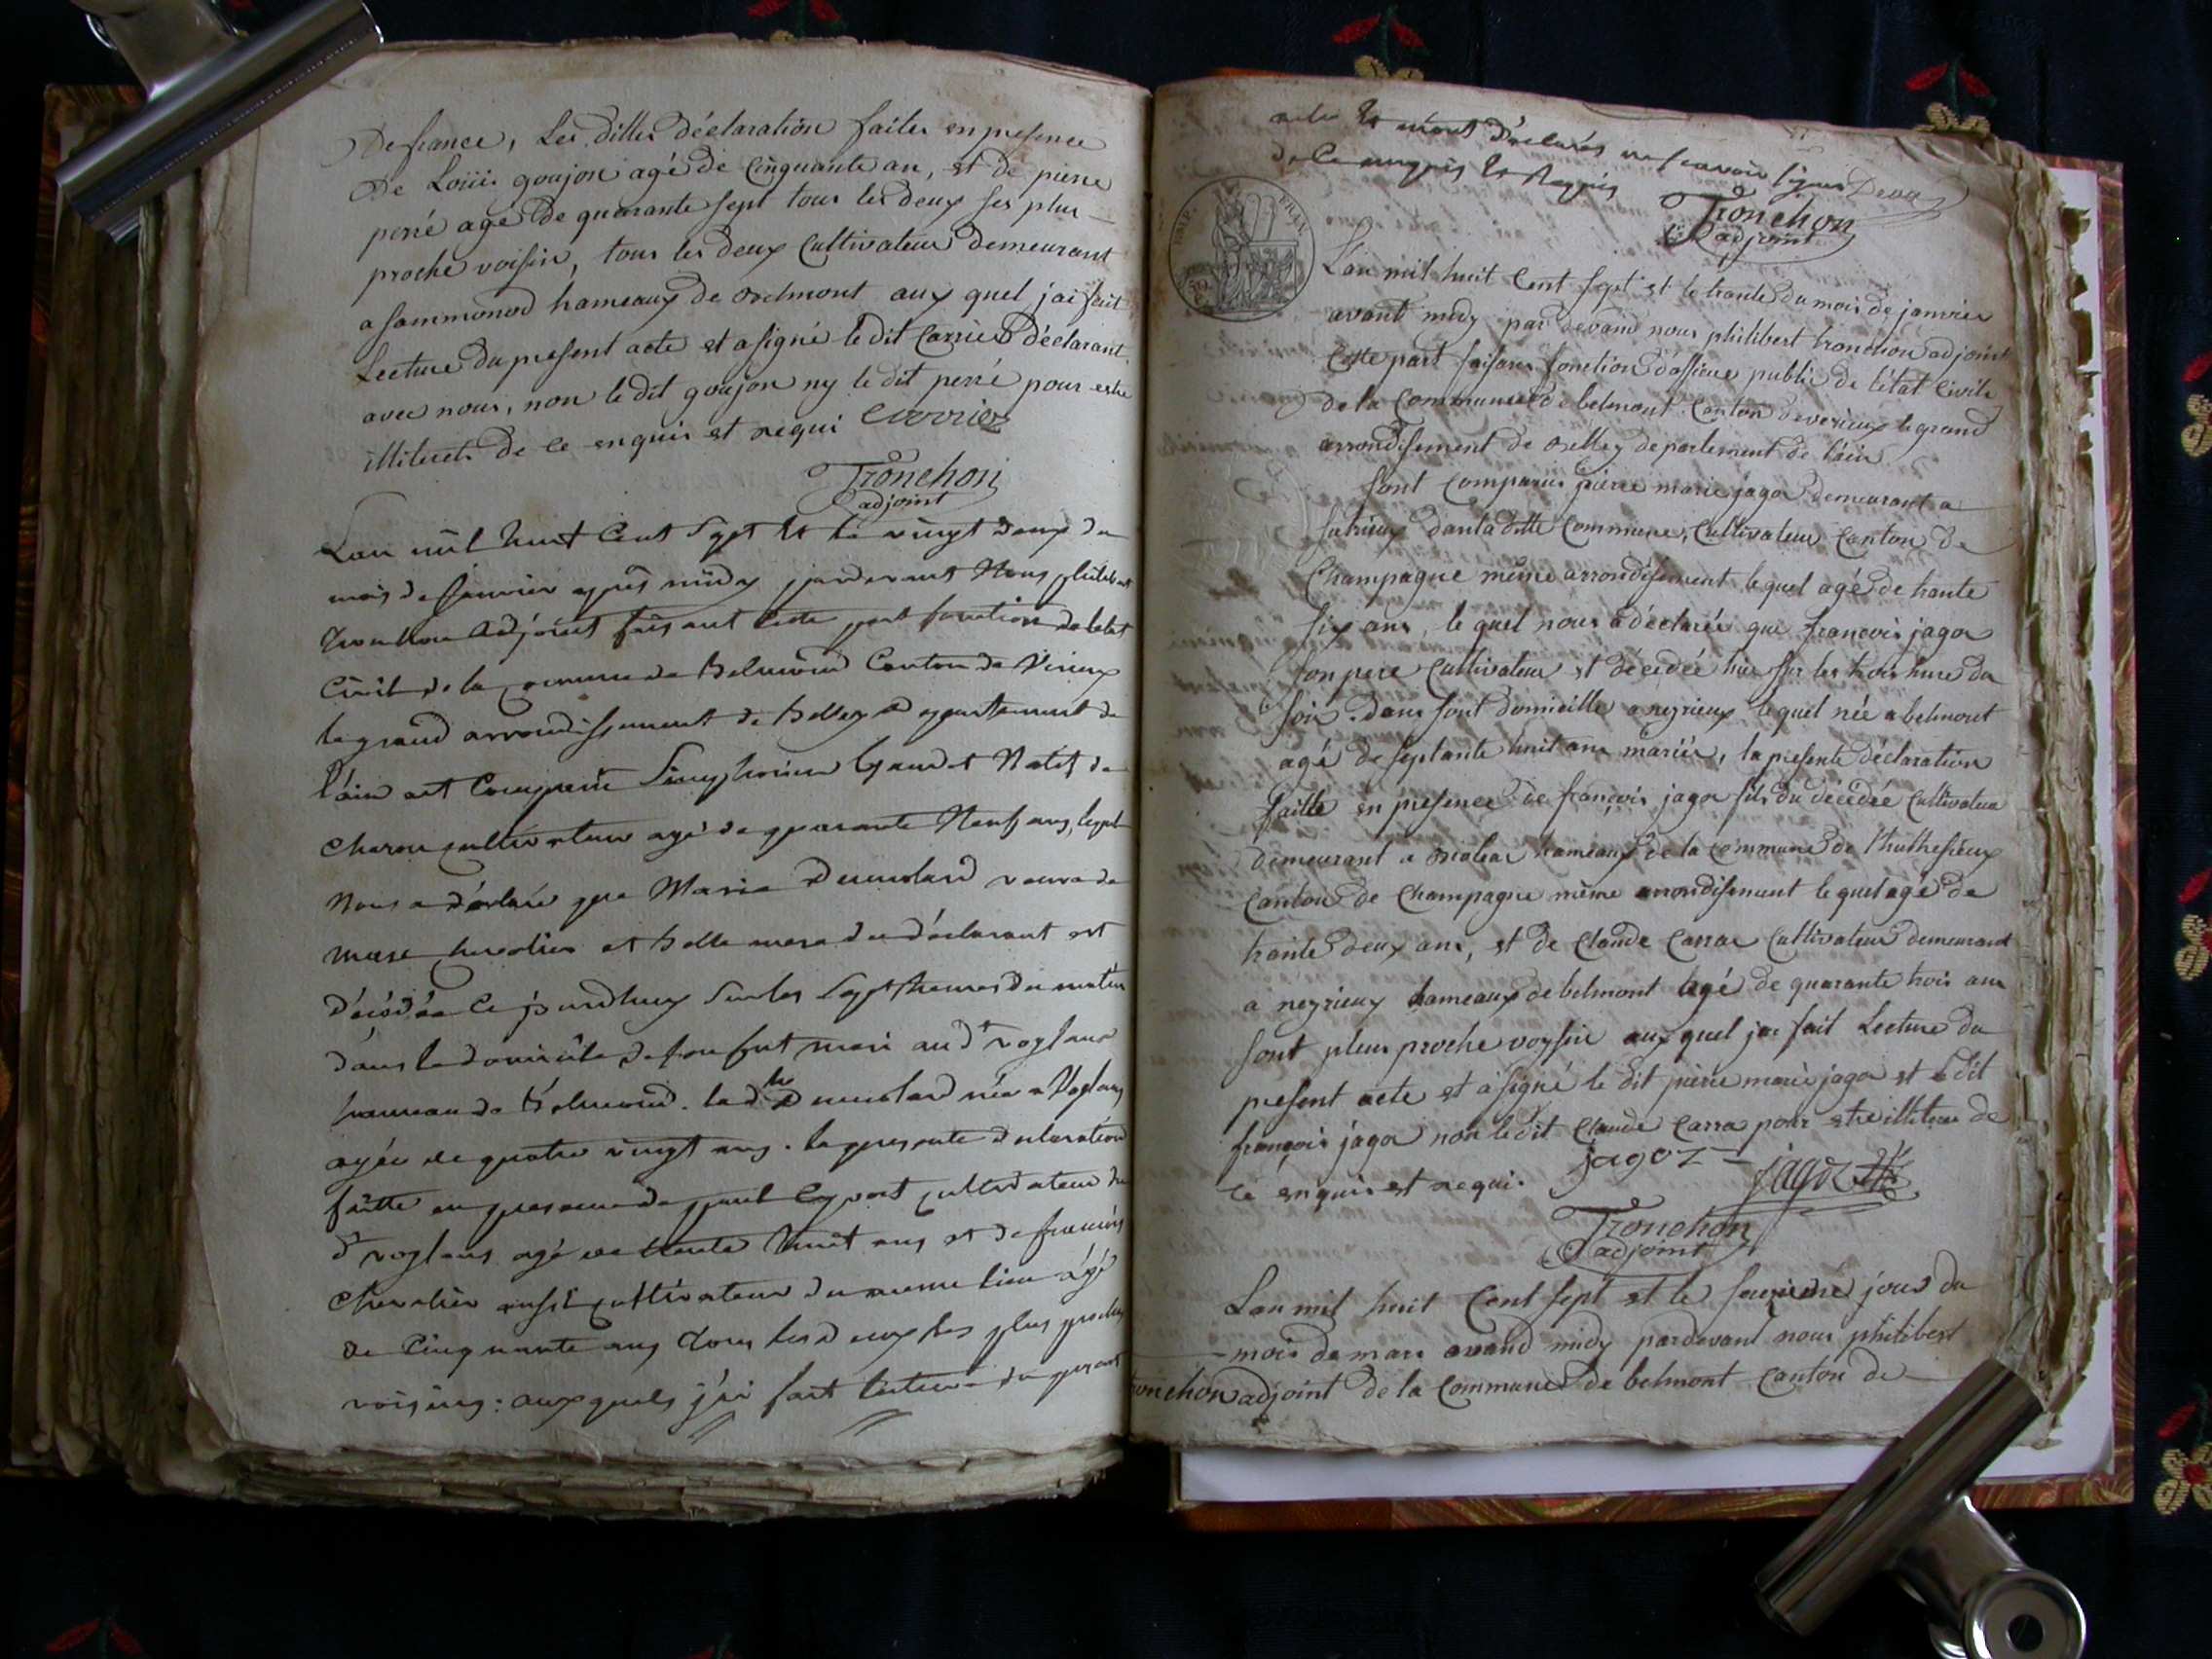 De france, Les dittes déclaration faites en presence
De Loüis goujon agé de Cinquante an, et de pierre
perré agé de quarante sept tous les deux ses plus
proche voisin, tous les deux Cultivateur demeurant
a sammonod hameaux de belmont aux quel jai fait
Lecture du present acte et a signé le dit Carrier déclarant
avec nous, non le dit goujon ny le dit perré pour estre
illiterets de ce enquis et requi Carrier
Tronchon
adjoint
Lan mil huit Cent Sept et le vingt deux du
mois de janvier après midy pardevant Nous philibert
tronchon adjoint faisant cette part fonction de letat
Civil de la commune de Belmond Canton de Virieux
le grand arrondissement de belley departement de
l'ain est Comparu Simphorien Natif de
cultivateur agé de quarante Neuf ans, lequel
Nous a déclaré que Marie Dumolard veuve de
chevalier et belle mere du déclarant est
décédée ce jourdhuy sur les sept heures du matin
dans le domicile de son fut mari aud voglans
hameau de Belmond. lad Dumolard née a Voglans
agée de quatre vingt ans. la presente declaration
faitte en presence de paul cultivateur du
d voglans agé de trente huit ans et de francois
Chevalier aussi cultivateur du meme lieu agé
de Cinquante ans tous les deux ses plus proches
voisins: auxquels j'ai fait lecture du present
acte et m'ont déclarés ne scavoir signer
de ce enquis et requis
Tronchon
adjoint
EMP. FRAN.
Lan mil huit Cent Sept et le trante du mois de janvier
avant midy par devand nous philibert tronchon adjoint
Cette part faisans fonction dofficier public de létat Civile
de la Commune de belmont Canton de verieux le grand
arrondisement de belley departement de lain
sont comparus pierre marie jagos demeurant a
sutrieux dans la ditte Commune, Cultivateur Canton de
Champagne même arrondisement lequel agé de trante
six ans, le quel nous a déclarés que françois jagos
son pere Cultivateur et décedée hier sur les trois hure du
soir dans sont domicille a neyrieux lequel née a belmont
agé de septante huit ans mariés, la presente déclaration
faitte en presence de françois jagos fils du décédée Cultivateur
demeurant a hameaux de la Commune de
Canton de Champagne même arrondisement lequel agé de
trante deux ans, et de Claude Carra Cultivateur demeurand
a neyrieux hameaux de belmont agé de quarante trois ans
sont pleus proche voysin aux quel jai fait Lecture du
present acte et a signé le dit pierre marie jagos et le dit
françois jagos non le dit Claude Carra pour etre illiteres de
ce enquis et requi. jagoz jagoz
Tronchon
adjoint
Lan mil huit Cent sept et le seizieme jour du
mois de mars avand midy pardevant nous philibert
tronchon adjoint de la Commune de belmont Canton de